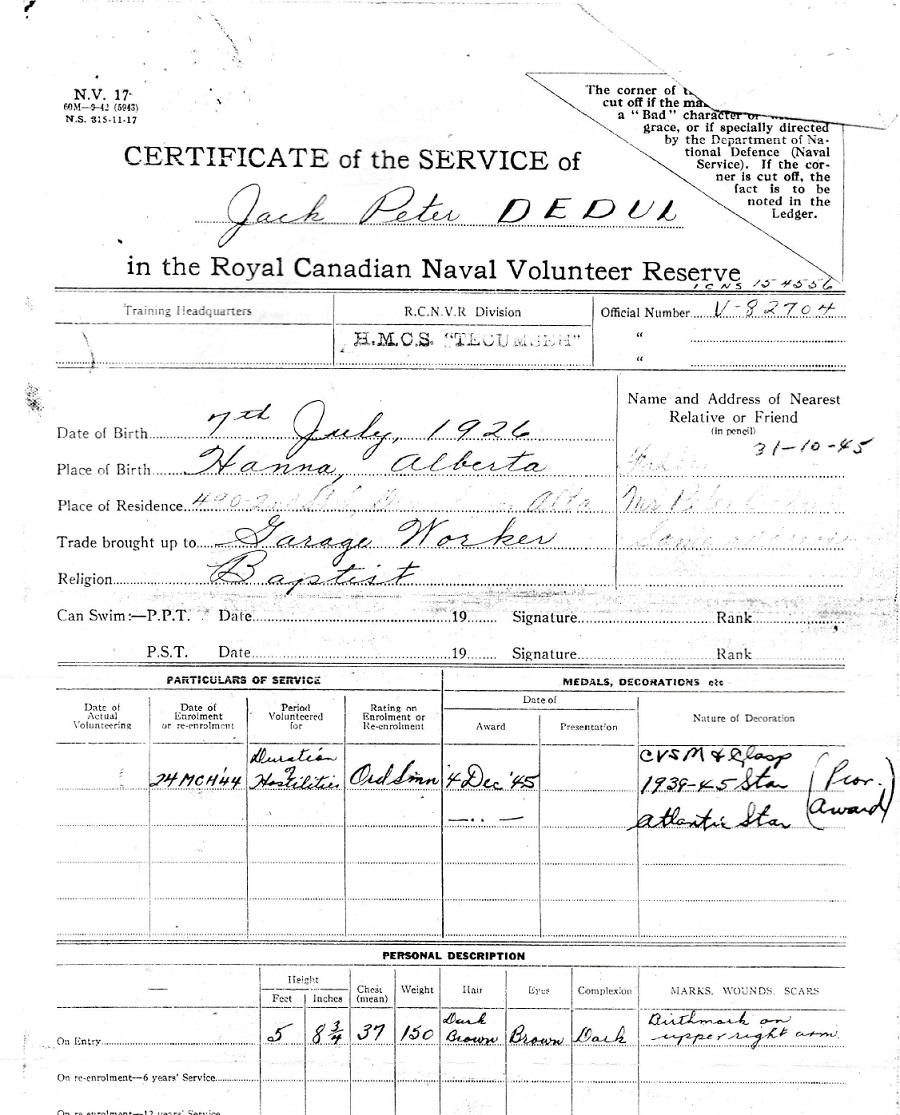 N.V. 17
60M—9-42 (5943)
N.S. 815-11-17
The corner of
cut off if the
a "Bad" character or
grace, or if specially directed
by the Department of Na-
tional Defence (Naval
Service). If the cor-
ner is cut off, the
fact is to be
noted in the
Ledger.
CERTIFICATE of the SERVICE of
Jack Peter DEDUL
in the Royal Canadian Naval Volunteer Reserve
ICNS 154556
Training Headquarters
R.C.N.V.R Division
H.M.C.S. "TECUMSEH"
Official Number V-82704
"
"
Name and Address of Nearest
Relative or Friend
(in pencil)
31-10-45
Date of Birth 7th July, 1926
Place of Birth Hanna, Alberta
Place of Residence 490-2nd Alta
Mr Peter
Same
Trade brought up to Garage Worker
Religion Baptist
Can Swim:—P.P.T. Date 19 Signature Rank
P.S.T. Date 19 Signature Rank
PARTICULARS OF SERVICE
MEDALS, DECORATIONS etc
Date of Actual Volunteering
Date of Enrolment or re-enrolment
Period Volunteered for
Rating on Enrolment or Re-enrolment
Date of
Award
Presentation
Nature of Decoration
24 MCH '44
Duration of Hostilities
Ord Smn
4 Dec '45
CVSM & Clasp
1939-45 Star
Atlantic Star
(Prior. Award)
—··—
PERSONAL DESCRIPTION
Height
Feet
Inches
Chest (mean)
Weight
Hair
Eyes
Complexion
MARKS, WOUNDS, SCARS
On Entry 5 8 3/4 37 150 Dark Brown Brown Dark Birthmark on upper right arm.
On re-enrolment—6 years' Service
On re-enrolment—12 years' Service